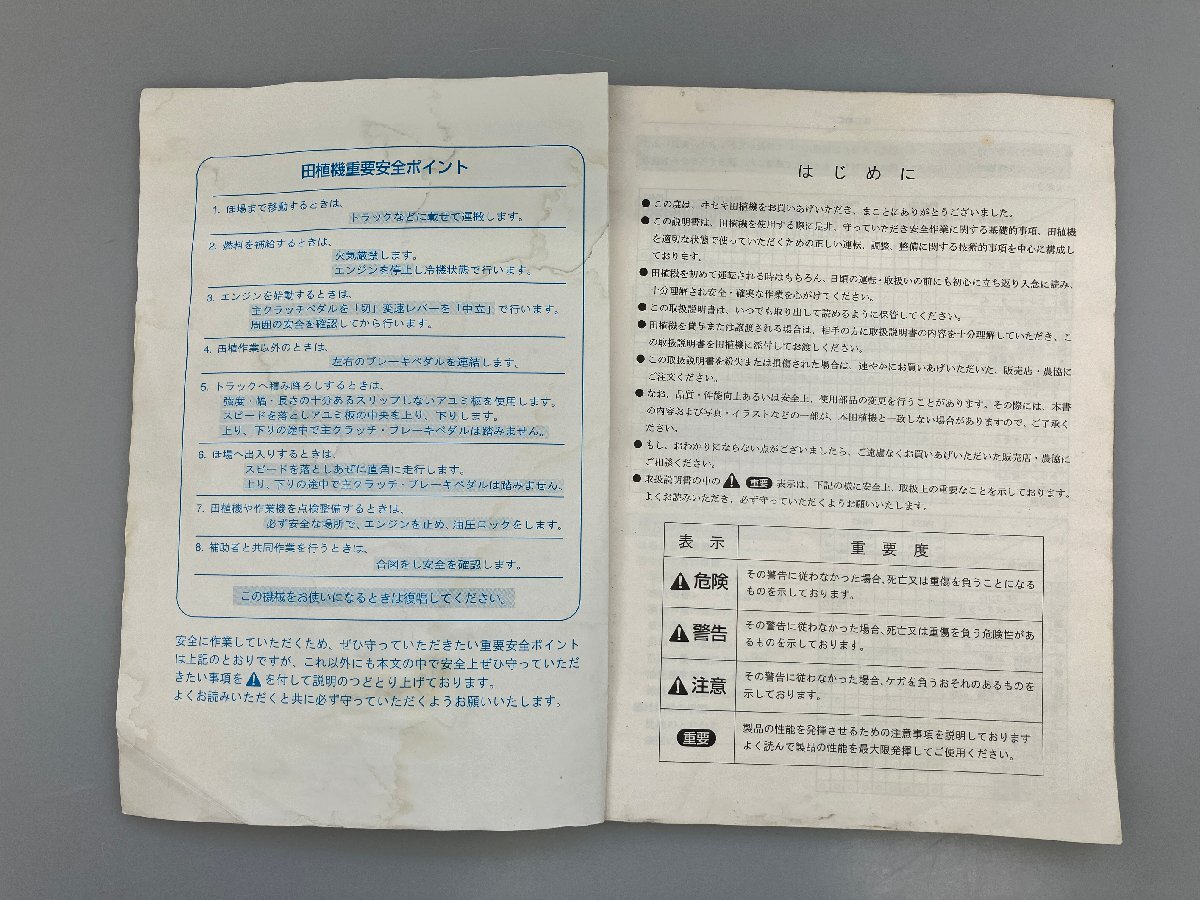 田植機重要安全ポイント
1. ほ場まで移動するときは、
トラックなどに載せて運搬します。
2. 燃料を補給するときは、
火気厳禁します。
エンジンを停止し冷機状態で行います。
3. エンジンを始動するときは、
主クラッチペダルを「切」変速レバーを「中立」で行います。
周囲の安全を確認してから行います。
4. 田植作業以外のときは、
左右のブレーキペダルを連結します。
5. トラックへ積み降ろしするときは、
強度・幅・長さの十分あるスリップしないアユミ板を使用します。
スピードを落としアユミ板の中央を上り、下りします。
上り、下りの途中で主クラッチ・ブレーキペダルは踏みません。
6. ほ場へ出入りするときは、
スピードを落としあぜに直角に走行します。
上り、下りの途中で主クラッチ・ブレーキペダルは踏みません。
7. 田植機や作業機を点検整備するときは、
必ず安全な場所で、エンジンを止め、油圧ロックをします。
8. 補助者と共同作業を行うときは、
合図をし安全を確認します。
この機械をお使いになるときは復唱してください。
安全に作業していただくため、ぜひ守っていただきたい重要安全ポイント
は上記のとおりですが、これ以外にも本文の中で安全上ぜひ守っていただ
きたい事項を⚠を付して説明のつどとり上げております。
よくお読みいただくと共に必ず守っていただくようお願いいたします。
はじめに
●この度は、井セキ田植機をお買いあげいただき、まことにありがとうございました。
●この説明書は、田植機を使用する際に是非、守っていただき安全作業に関する基礎的事項、田植機
を適切な状態で使っていただくための正しい運転、調整、整備に関する技術的事項を中心に構成し
ております。
●田植機を初めて運転される時はもちろん、日頃の運転・取扱いの前にも初心に立ち返り入念に読み、
十分理解され安全・確実な作業を心がけてください。
●この取扱説明書は、いつでも取り出して読めるように保管してください。
●田植機を貸与または譲渡される場合は、相手の方に取扱説明書の内容を十分理解していただき、こ
の取扱説明書を田植機に添付してお渡しください。
●この取扱説明書を紛失または損傷された場合は、速やかにお買いあげいただいた、販売店・農協に
ご注文ください。
●なお、品質・性能向上あるいは安全上、使用部品の変更を行うことがあります。その際には、本書
の内容および写真・イラストなどの一部が、本田植機と一致しない場合がありますので、ご了承く
ださい。
●もし、おわかりにならない点がございましたら、ご遠慮なくお買いあげいただいた販売店・農協に
ご相談ください。
●取扱説明書の中の ⚠ 重要 表示は、下記の様に安全上、取扱上の重要なことを示しております。
よくお読みいただき、必ず守っていただくようお願いします。
表示 重要度
⚠危険 その警告に従わなかった場合、死亡又は重傷を負うことになる
ものを示しております。
⚠警告 その警告に従わなかった場合、死亡又は重傷を負う危険性があ
るものを示しております。
⚠注意 その警告に従わなかった場合、ケガを負うおそれのあるものを
示しております。
重要 製品の性能を発揮させるための注意事項を説明しております
よく読んで製品の性能を最大限発揮してご使用ください。